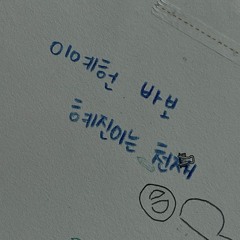 이예헌 바보
혜진이는 천재